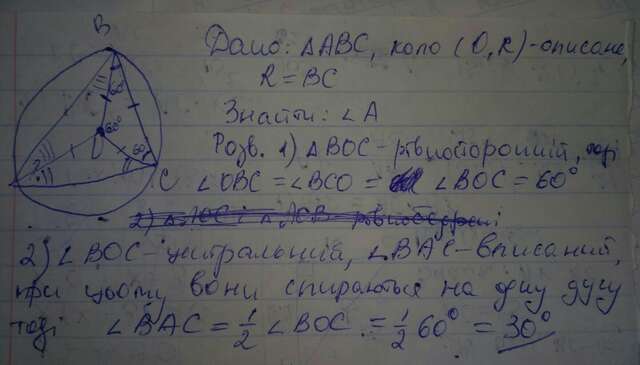 B
60°
60°
60°
O
?
C
Дано: △ABC, коло (O, R) - описане,
R = BC
Знайти: ∠A
Розв. 1) △BOC - рівносторонній, тоді
∠OBC = ∠BCO = ∠BOC = 60°
2) ∠BOC - центральний, ∠BAC - вписаний,
при цьому вони спираються на одну дугу
тоді ∠BAC = 1/2 ∠BOC = 1/2 60° = 30°